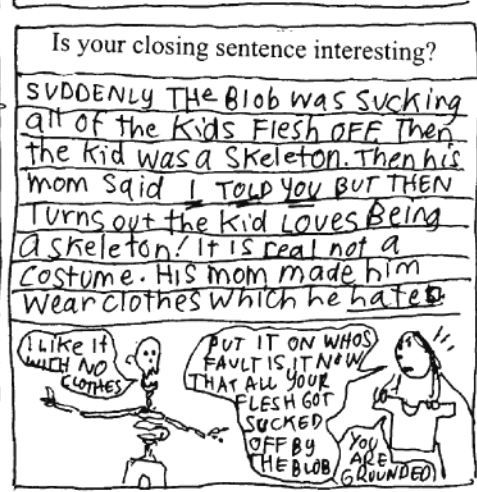 Is your closing sentence interesting?
SUDDENLY THE Blob was sucking
all of the Kids Flesh OFF Then
the Kid was a Skeleton. Then his
mom Said I TOLD YOU BUT THEN
Turns out the Kid Loves Being
a skeleton! It is real not a
Costume. His mom made him
wear clothes which he hates.
I LIKE It
WITH NO
CLOTHES
PUT IT ON WHOS
FAULT IS IT NOW
THAT ALL YOUR
FLESH GOT
SUCKED
OFF BY
THE BLOB
YOU
ARE
GROUNDED!